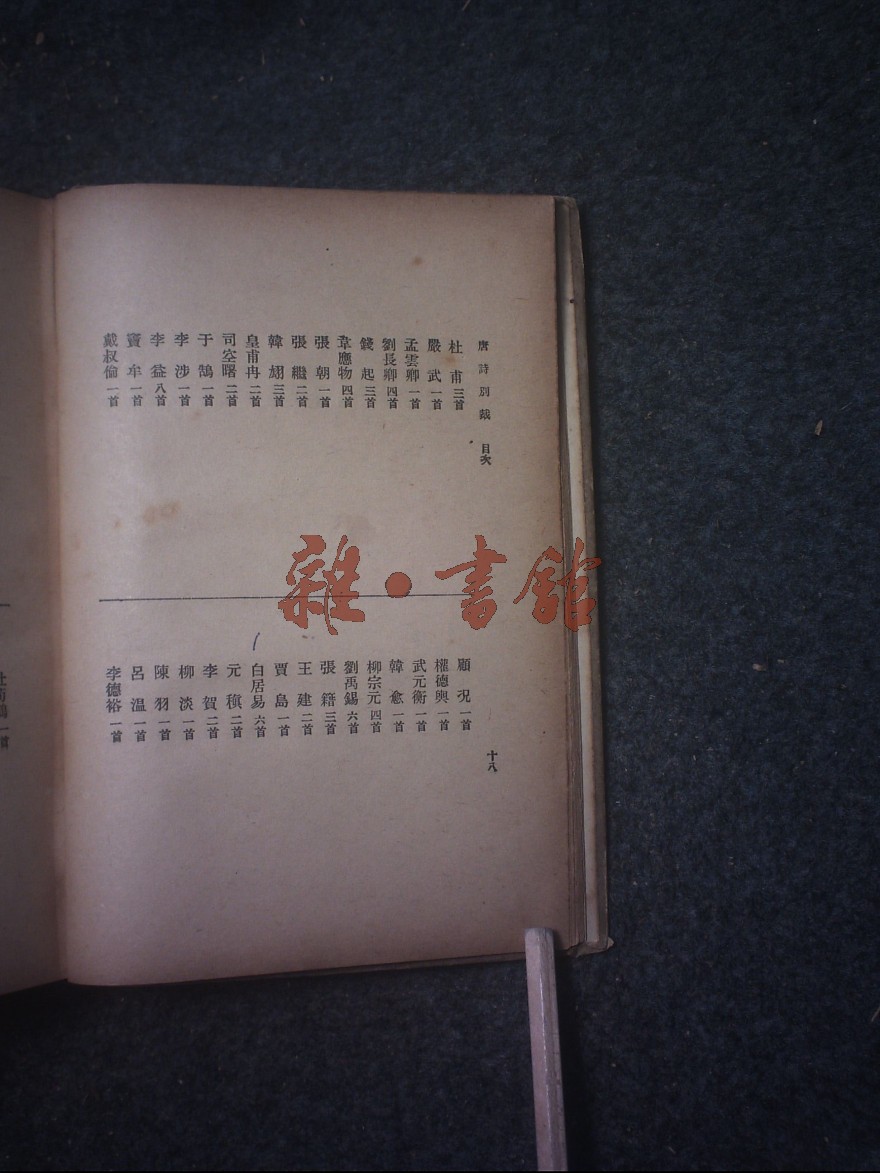 唐詩別裁 目次
杜甫 三首
嚴武 一首
孟雲卿 一首
劉長卿 四首
錢起 三首
韋應物 四首
張朝 一首
張繼 二首
韓翃 三首
皇甫冉 二首
司空曙 二首
于鵠 一首
李涉 一首
李益 八首
竇牟 一首
戴叔倫 一首
十八
顧況 一首
權德輿 一首
武元衡 一首
韓愈 一首
柳宗元 四首
劉禹錫 六首
張籍 三首
王建 二首
賈島 一首
白居易 六首
元稹 二首
李賀 二首
柳淡 一首
陳羽 一首
呂溫 一首
李德裕 一首
雜·書館
一首